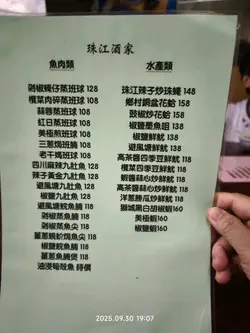 珠江酒家
魚肉類
剁椒蠔仔蒸班球 128
欖菜肉碎蒸班球 128
蒜蓉蒸班球 128
紅日蒸班球 128
美極煎班球 128
三葱焗班腩 118
老干媽班球 128
四川麻辣九肚魚 118
辣子黃金九肚魚 118
避風塘九肚魚 118
椒鹽九肚魚 118
避風塘鯇魚腩 118
剁椒蒸魚腩 118
剁椒蒸魚尖 118
薑葱蜆蚧焗魚尖 118
椒鹽鯇魚腩 118
薑葱魚腩煲 118
油浸筍殼魚 時價
水產類
珠江辣子炒珠蠔 148
鄉村銅盆花蛤 158
豉椒炒花蛤 158
椒鹽墨魚咀 138
椒鹽鮮魷 118
避風塘鮮魷 118
高茶醬四季豆鮮魷 118
欖菜四季豆鮮魷 118
蝦醬菜心炒鮮魷 118
高茶醬菜心炒鮮魷 118
洋葱勝瓜炒鮮魷 118
獅城黑白胡椒蝦160
美極蝦160
椒鹽蝦160
2025.09.30 19:07